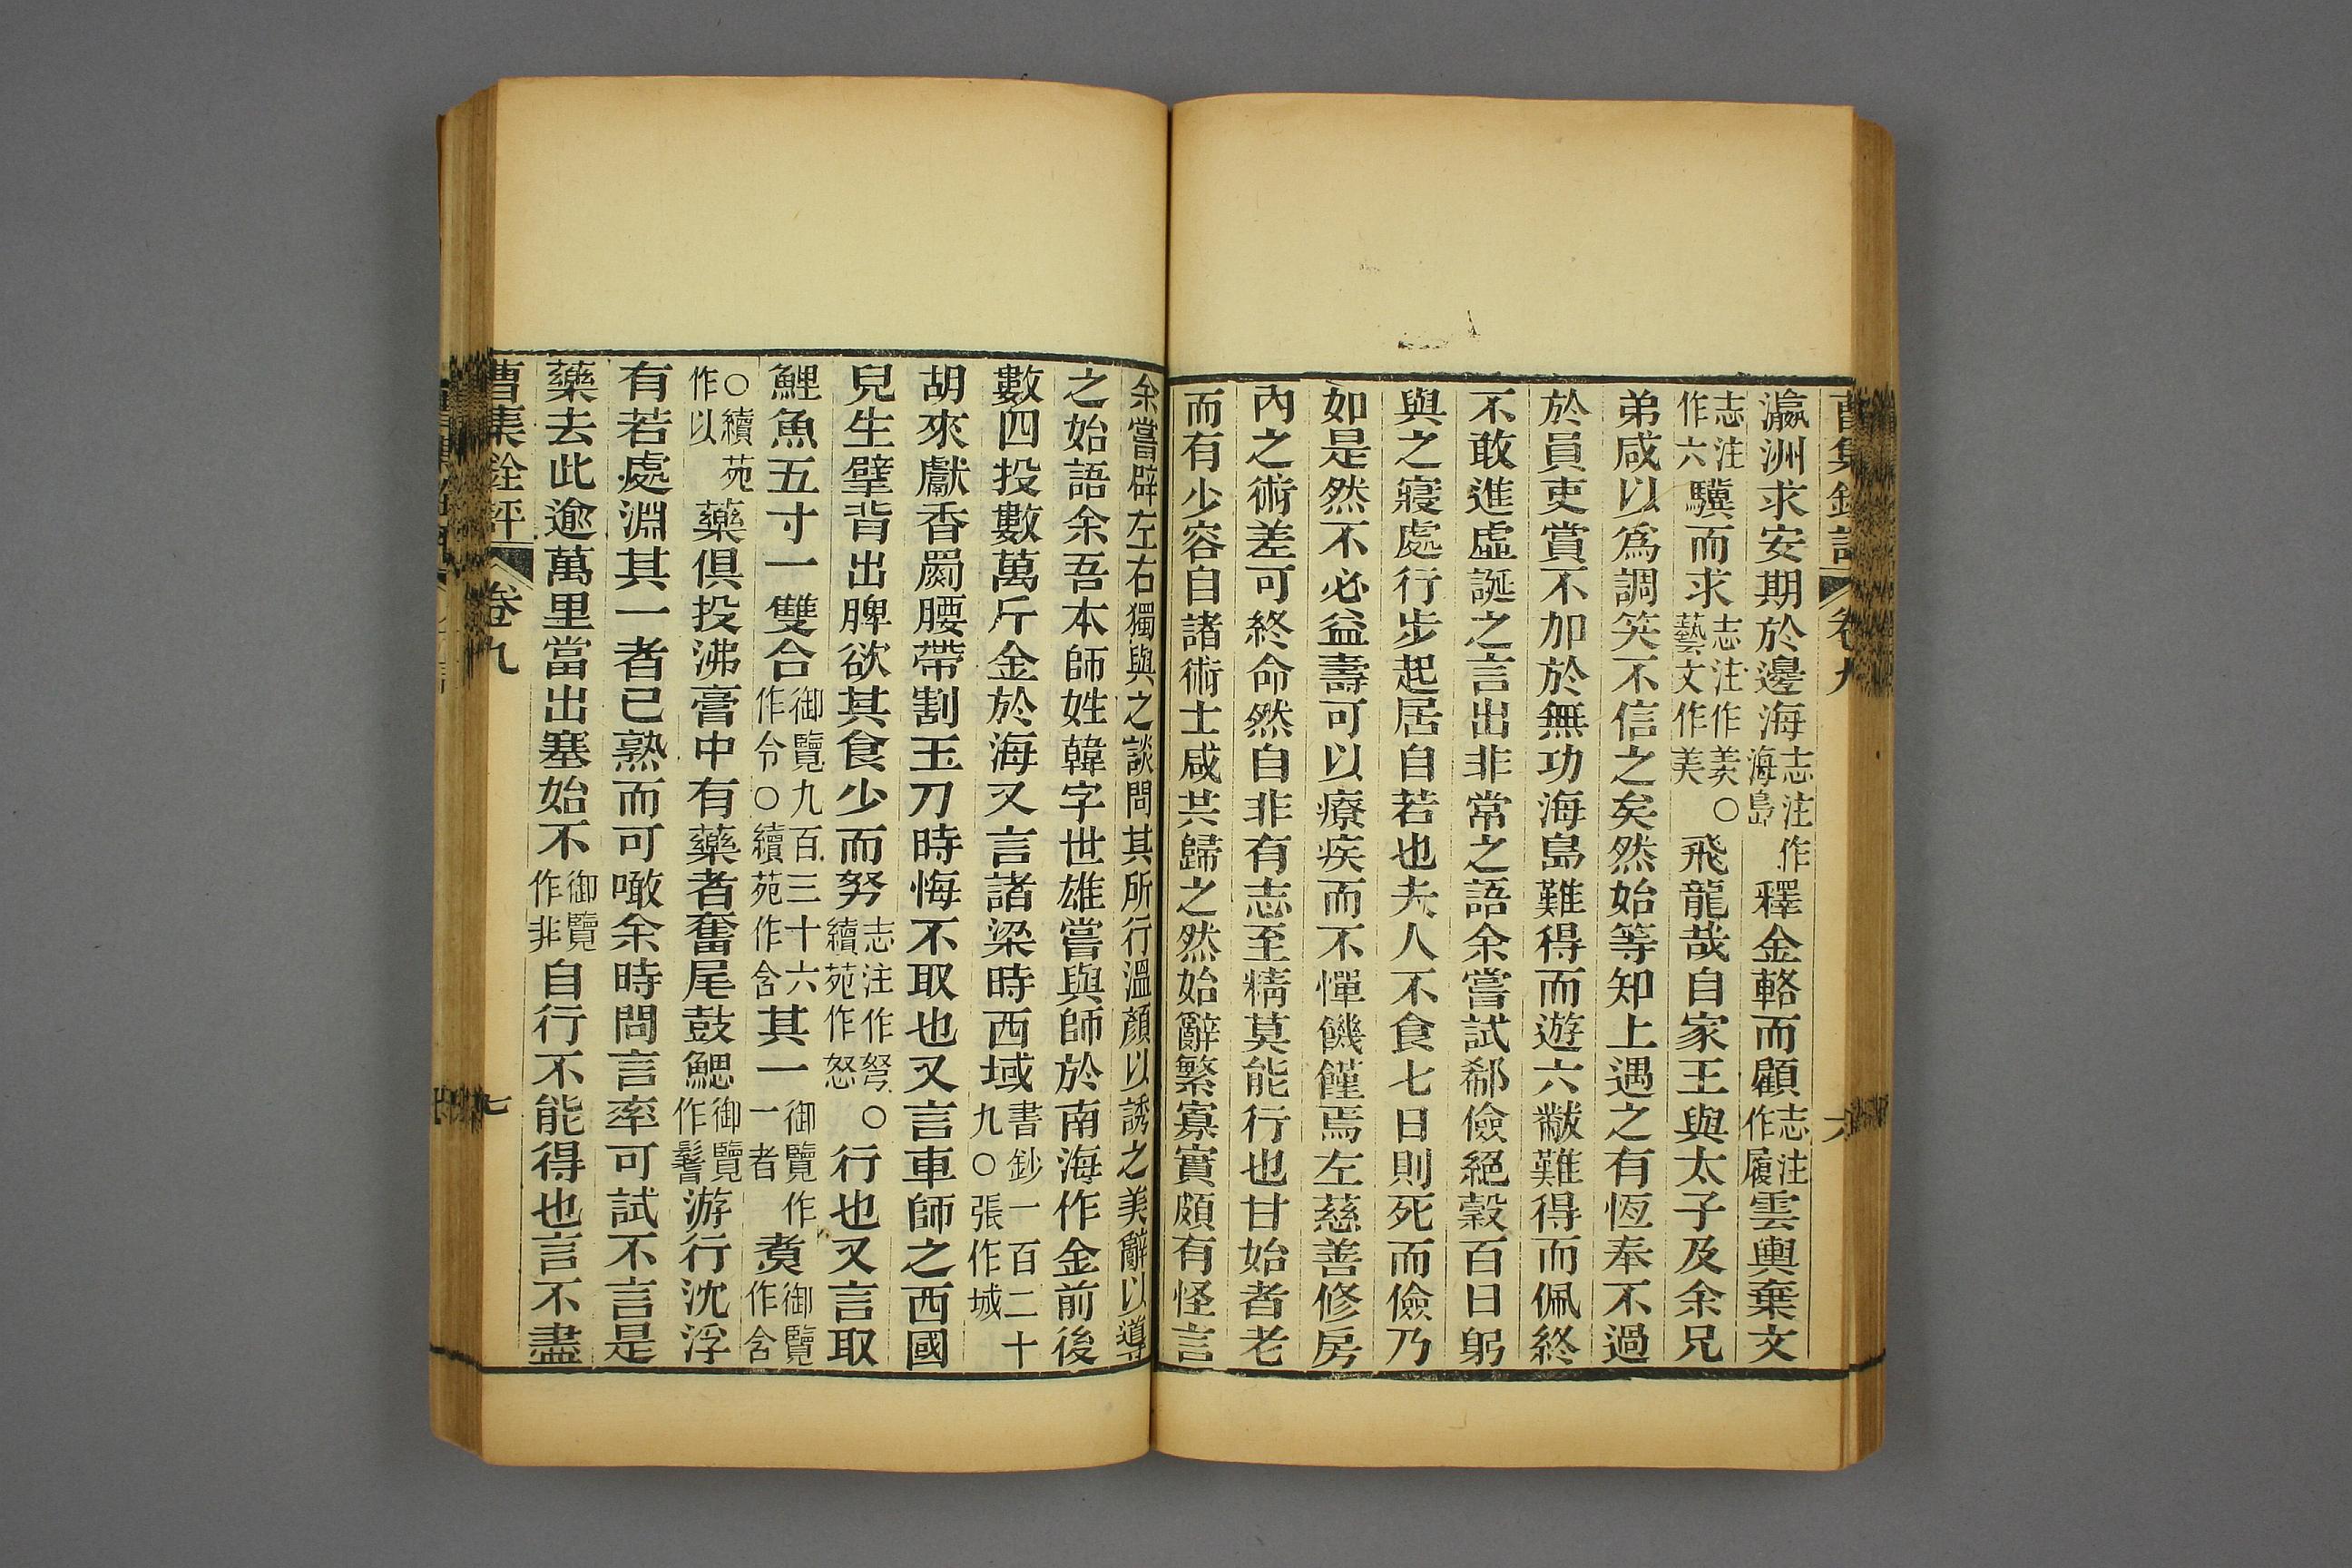 曹集銓評 卷九 六
瀛洲求安期於邊海志注作海島釋金輅而顧志注作履雲輿棄文
志注作六驥而求志注作羨○藝文作美飛龍哉自家王與太子及余兄
弟咸以為調笑不信之矣然始等知上遇之有恆奉不過
於員吏賞不加於無功海島難得而遊六黻難得而佩終
不敢進虛誕之言出非常之語余嘗試郗儉絕穀百日躬
與之寢處行步起居自若也夫人不食七日則死而儉乃
如是然不必益壽可以療疾而不憚饑饉焉左慈善修房
內之術差可終命然自非有志至精莫能行也甘始者老
而有少容自諸術士咸共歸之然始辭繁寡實頗有怪言
余嘗辟左右獨與之談問其所行溫顏以誘之美辭以導
之始語余吾本師姓韓字世雄嘗與師於南海作金前後
數四投數萬斤金於海又言諸梁時西域書鈔一百二十九○張作城
胡來獻香罽腰帶割玉刀時悔不取也又言車師之西國
兒生擘背出脾欲其食少而努志注作弩○續苑作怒行也又言取
鯉魚五寸一雙合御覽九百三十六作令○續苑作含其一御覽作一者煑御覽作含
○續苑作以藥俱投沸膏中有藥者奮尾鼓鰓御覽作鬐游行沈浮
有若處淵其一者已熟而可噉余時問言率可試不言是
藥去此逾萬里當出塞始不御覽作非自行不能得也言不盡
曹集銓評 卷九 七